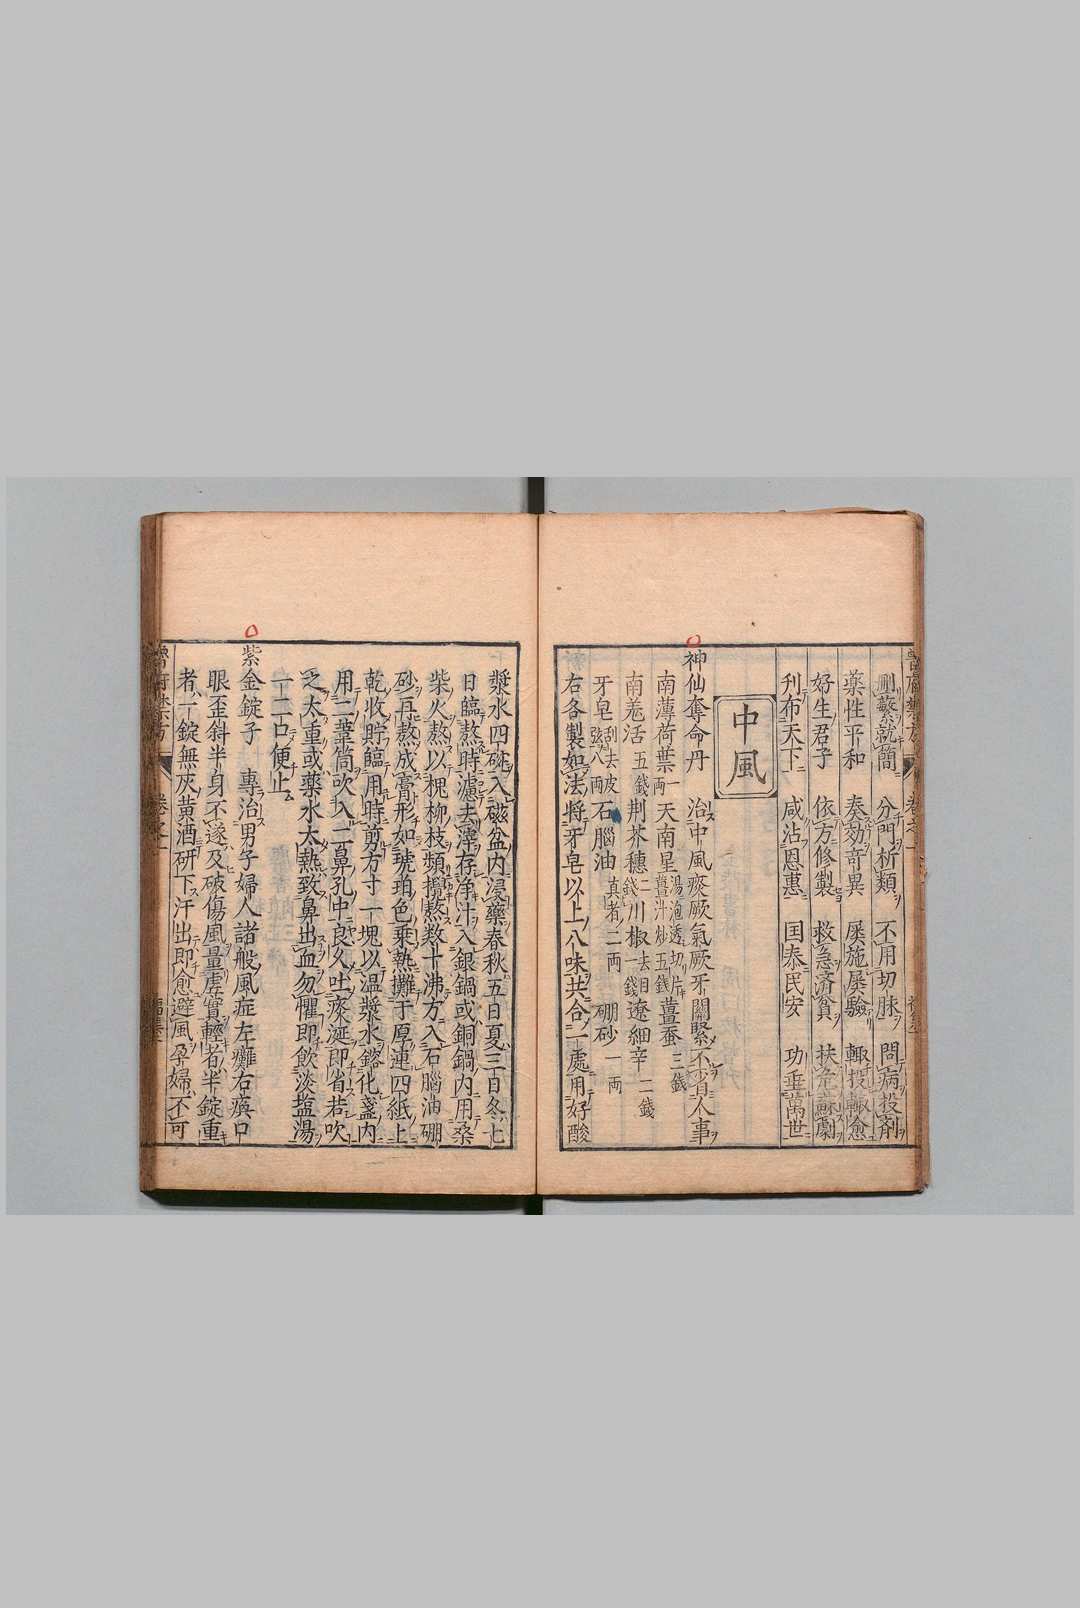 刪蘩就簡 分門析類 不用切脉 問病投剤
藥性平和 奏効奇異 屡施屡驗 輙投輙愈
好生君子 依方修製 救急済貧 扶危蘇劇
刋布天下 咸沾恩惠 国泰民安 功垂萬世
中風
神仙奪命丹 治中風痰厥氣厥牙關緊不省人事
南薄荷葉一両 天南星湯泡透切片薑汁炒五錢 薑蚕三錢
南羗活五錢 荆芥穗二錢 川椒去目一錢 遼細辛二錢
牙皂刮去皮弦八両 石腦油真者二両 硼砂一両
右各製如法將牙皂以上八味共合一處用好酸
漿水四碗入磁盆内浸藥春秋五日夏三日冬七
日臨熬時濾去滓存浄汁入銀鍋或銅鍋内用桑
柴火熬以槐柳枝頻攪熬数十沸方入石腦油硼
砂再熬成膏形如琥珀色乗熱攤于厚連四紙上
乾收貯臨用時剪方寸一塊以温漿水鎔化盞内
用二葦筒吹入二鼻孔中良久吐痰涎即省若吹
乏太重或藥水太熱致鼻出血勿懼即飲淡塩湯
一二口便止
紫金錠子 專治男子婦人諸般風症左癱右瘓口
眼歪斜半身不遂及破傷風量虚實輕者半錠重
者一錠無灰黄酒研下汗出即愈避風孕婦不可
卷之一